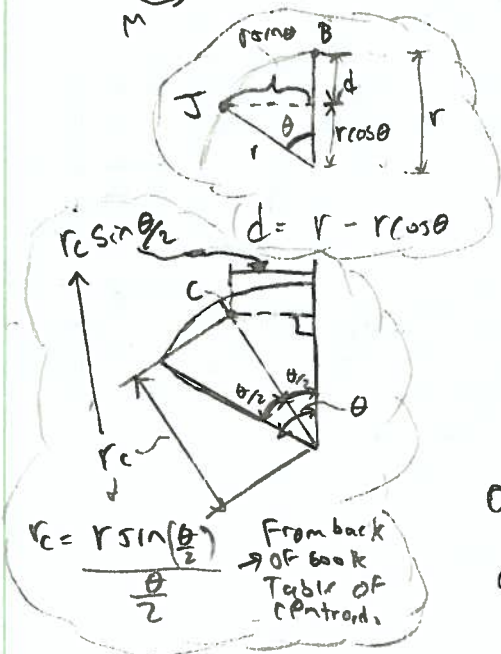 M
rsinθ B
d
J
θ
rcosθ
r
r
d = r - rcosθ
rc sin θ/2
C
θ/2 θ/2
θ
rc
rc = r sin(θ/2)
θ
2
From back
→ of book
Table of
centroid.